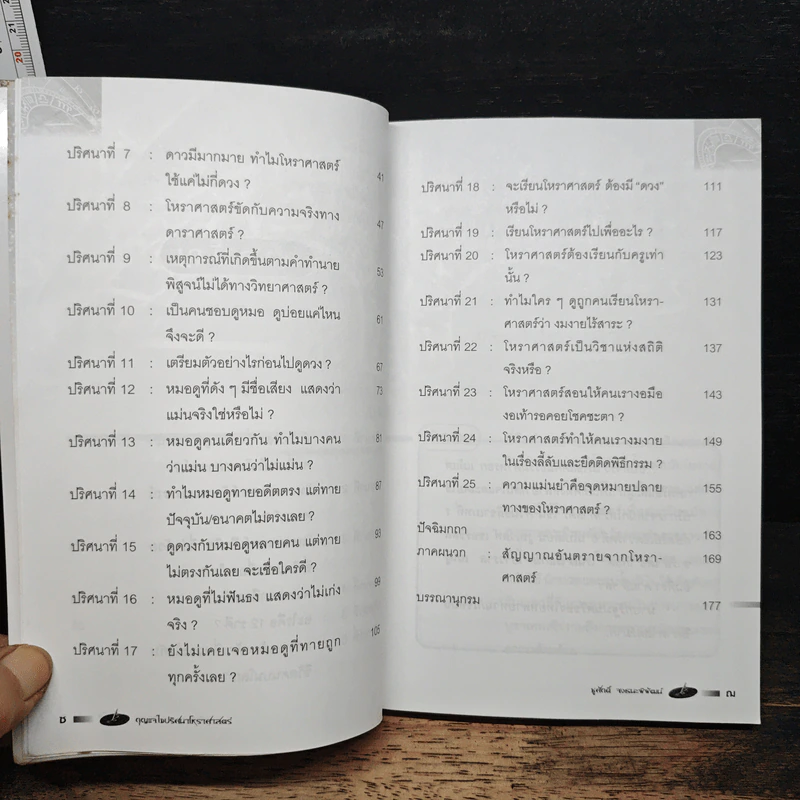 ปริศนาที่ 7 : ดาวมีมากมาย ทำไมโหราศาสตร์ 41
ใช้แค่ไม่กี่ดวง ?
ปริศนาที่ 8 : โหราศาสตร์ขัดกับความจริงทาง 47
ดาราศาสตร์ ?
ปริศนาที่ 9 : เหตุการณ์ที่เกิดขึ้นตามคำทำนาย 53
พิสูจน์ไม่ได้ทางวิทยาศาสตร์ ?
ปริศนาที่ 10 : เป็นคนชอบดูหมอ ดูบ่อยแค่ไหน 61
จึงจะดี ?
ปริศนาที่ 11 : เตรียมตัวอย่างไรก่อนไปดูดวง ? 67
ปริศนาที่ 12 : หมอดูที่ดัง ๆ มีชื่อเสียง แสดงว่า 73
แม่นจริงใช่หรือไม่ ?
ปริศนาที่ 13 : หมอดูคนเดียวกัน ทำไมบางคน 81
ว่าแม่น บางคนว่าไม่แม่น ?
ปริศนาที่ 14 : ทำไมหมอดูทายอดีตตรง แต่ทาย 87
ปัจจุบัน/อนาคตไม่ตรงเลย ?
ปริศนาที่ 15 : ดูดวงกับหมอดูหลายคน แต่ทาย 93
ไม่ตรงกันเลย จะเชื่อใครดี ?
ปริศนาที่ 16 : หมอดูที่ไม่ฟันธง แสดงว่าไม่เก่ง 99
จริง ?
ปริศนาที่ 17 : ยังไม่เคยเจอหมอดูที่ทายถูก 105
ทุกครั้งเลย ?
ซ กุญแจไขปริศนาโหราศาสตร์
ปริศนาที่ 18 : จะเรียนโหราศาสตร์ ต้องมี "ดวง" 111
หรือไม่ ?
ปริศนาที่ 19 : เรียนโหราศาสตร์ไปเพื่ออะไร ? 117
ปริศนาที่ 20 : โหราศาสตร์ต้องเรียนกับครูเท่า 123
นั้น ?
ปริศนาที่ 21 : ทำไมใคร ๆ ดูถูกคนเรียนโหรา- 131
ศาสตร์ว่า งมงายไร้สาระ ?
ปริศนาที่ 22 : โหราศาสตร์เป็นวิชาแห่งสถิติ 137
จริงหรือ ?
ปริศนาที่ 23 : โหราศาสตร์สอนให้คนเรางอมือ 143
งอเท้ารอคอยโชคชะตา ?
ปริศนาที่ 24 : โหราศาสตร์ทำให้คนเรางมงาย 149
ในเรื่องลี้ลับและยึดติดพิธีกรรม ?
ปริศนาที่ 25 : ความแม่นยำคือจุดหมายปลาย 155
ทางของโหราศาสตร์ ?
ปัจฉิมกถา 163
ภาคผนวก : สัญญาณอันตรายจากโหรา- 169
ศาสตร์
บรรณานุกรม 177
ชูศักดิ์ ฌ
20
21